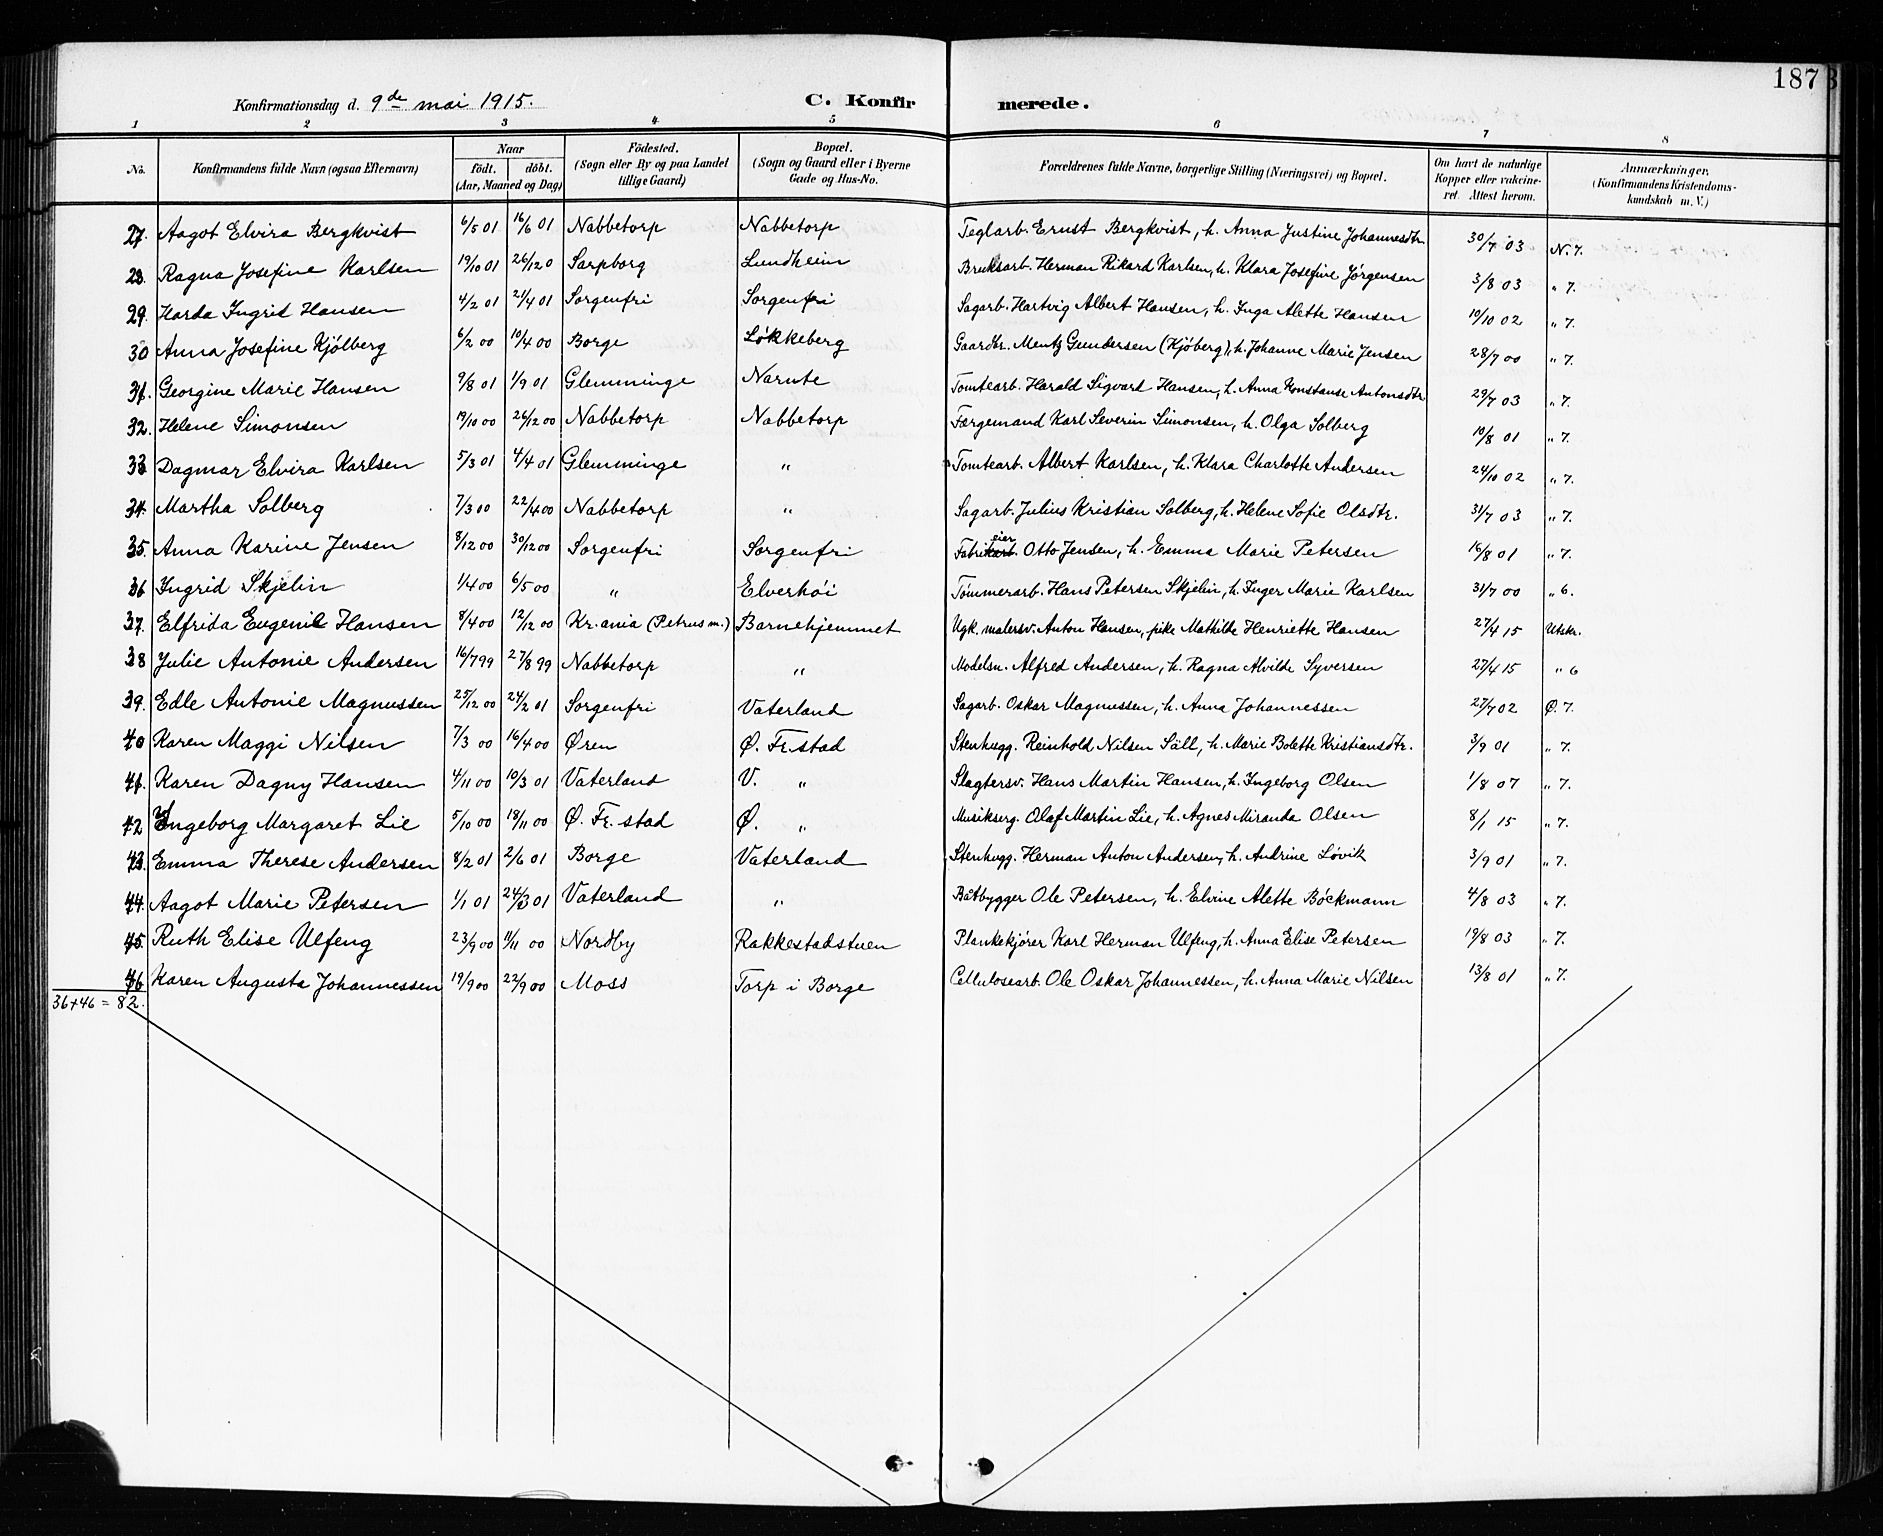 187
Konfirmationsdag d. 9de mai 1915. C. Konfirmerede.
1 2 3 4 5 6 7 8
No. Konfirmandens fulde Navn (ogsaa Efternavn) Naar født. døbt. (Aar, Maaned og Dag) Födested. (Sogn eller By og paa Landet tillige Gaard) Bopæl. (Sogn og Gaard eller i Byerne Gade og Hus-No. Forældrenes fulde Navne, borgerlige Stilling (Næringsvei) og Bopæl. Om havt de naturlige Kopper eller vakcineret. Attest herom. Anmærkninger. (Konfirmandens Kristendomskundskab m. V.)
27. Aagot Elvira Bergkvist 6/5 01 16/6 01 Nabbetorp Nabbetorp Teglarb. Ernst Bergkvist, h. Anna Justine Johannesdtr. 30/7 03 N. 7.
28. Ragna Josefine Karlsen 19/10 01 26/12 0 Sarpborg Lundheim Bruksarb. Herman Rikard Karlsen, h. Klara Josefine Jørgensen 3/8 03 " 7.
29. Harda Ingrid Hansen 4/2 01 21/4 01 Sorgenfri Sorgenfri Sagarb. Hartvig Albert Hansen, h. Inga Alette Hansen 10/10 02 " 7.
30 Anna Josefine Kjölberg 6/2 00 10/4 00 Borge Løkkeberg Gaardbr. Mentz Gundersen (Kjöberg), h. Johanne Marie Jensen 28/7 00 " 7.
31. Georgine Marie Hansen 9/8 01 1/9 01 Glemminge Narnte Tomtearb. Harald Sigvard Hansen, h. Anna Konstanse Antonsdtr 29/7 03 " 7.
32. Helene Simonsen 19/10 00 26/12 00 Nabbetorp Nabbetorp Færgemand Karl Severin Simonsen, h. Olga Solberg 10/8 01 " 7.
33 Dagmar Elvira Karlsen 5/3 01 4/4 01 Glemminge " Tomtearb. Albert Karlsen, h. Klara Charlotte Andersen 24/10 02 " 7.
34. Martha Solberg 7/3 00 22/4 00 Nabbetorp " Sagarb. Julius Kristian Solberg, h. Helene Sofie Olsdtr. 31/7 03 " 7.
35. Anna Karine Jensen 8/12 00 30/12 00 Sorgenfri Sorgenfri Fabrikeier Otto Jensen, h. Emma Marie Petersen 16/8 01 " 7.
36 Ingrid Skjelin 1/4 00 6/5 00 " Elverhöi Tømmerarb. Hans Petersen Skjelin, h. Inger Marie Karlsen 31/7 00 " 6.
37. Elfrida Eugenie Hansen 8/4 00 12/12 00 Kr.ania (Petrus m.) Barnehjemmet Ugk. malersv. Anton Hansen, pike Mathilde Henriette Hansen 27/4 15 Utskr.
38 Julie Antonie Andersen 16/7 99 27/8 99 Nabbetorp " Modelsn. Alfred Andersen, h. Ragna Alvilde Syversen 27/4 15 " 6
39. Edle Antonie Magnussen 25/12 00 24/2 01 Sorgenfri Vaterland Sagarb. Oskar Magnussen, h. Anna Johannessen 27/7 02 Ø. 7.
40 Karen Maggi Nilsen 7/3 00 16/4 00 Øren Ø. Fr.stad Stenhugg. Reinhold Nilsen Säll, h. Marie Bolette Kristiansdtr. 3/9 01 " 7.
41. Karen Dagny Hansen 4/11 00 10/3 01 Vaterland V. " Slagtersv. Hans Martin Hansen, h. Ingeborg Olsen 1/8 07 " 7.
42 Ingeborg Margaret Lie 5/10 00 18/11 00 Ø. Fr. stad Ø. " Musikserg. Olaf Martin Lie, h. Agnes Miranda Olsen 8/1 15 " 7.
43. Emma Therese Andersen 8/2 01 2/6 01 Borge Vaterland Stenhugg. Herman Anton Andersen, h. Andrine Løvik 3/9 01 " 7.
44. Aagot Marie Petersen 1/1 01 24/3 01 Vaterland " Båtbygger Ole Petersen, h. Elvine Alette Böckmann 4/8 03 " 7.
45. Ruth Elise Ulfeng 23/9 00 11/11 00 Nordby Rakkestadstuen Plankekjører Karl Herman Ulfeng, h. Anna Elise Petersen 19/8 03 " 7.
46 Karen Augusta Johannessen 19/9 00 22/9 00 Moss Torp i Borge Cellulosearb. Ole Oskar Johannessen, h. Anna Marie Nilsen 13/8 01 " 7.
36+46 = 82.